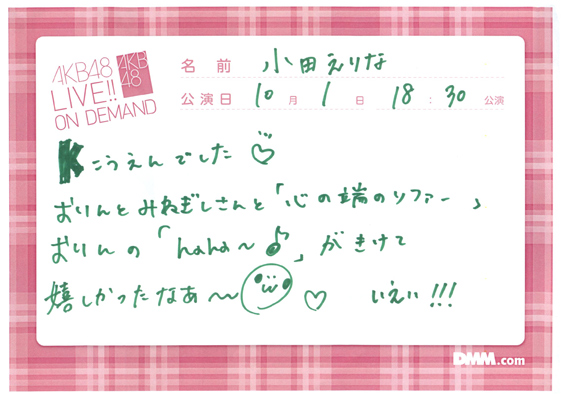 AKB48
LIVE!!
ON DEMAND
AKB
48
名前 小田えりな
公演日 10月1日 18:30公演
Kこうえんでした♡
おりんとみねぎしさんと「心の端のソファー」
おりんの「haha〜♪」がきけて
嬉しかったなあ〜〜 ♡ いえい!!!
DMM.com